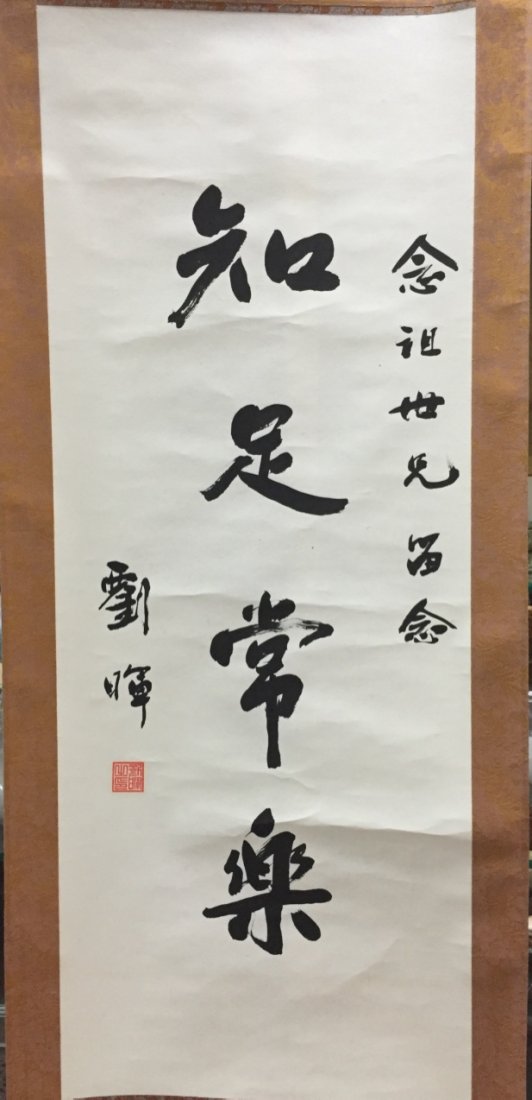 念祖世兄留念
知足常樂
劉暉